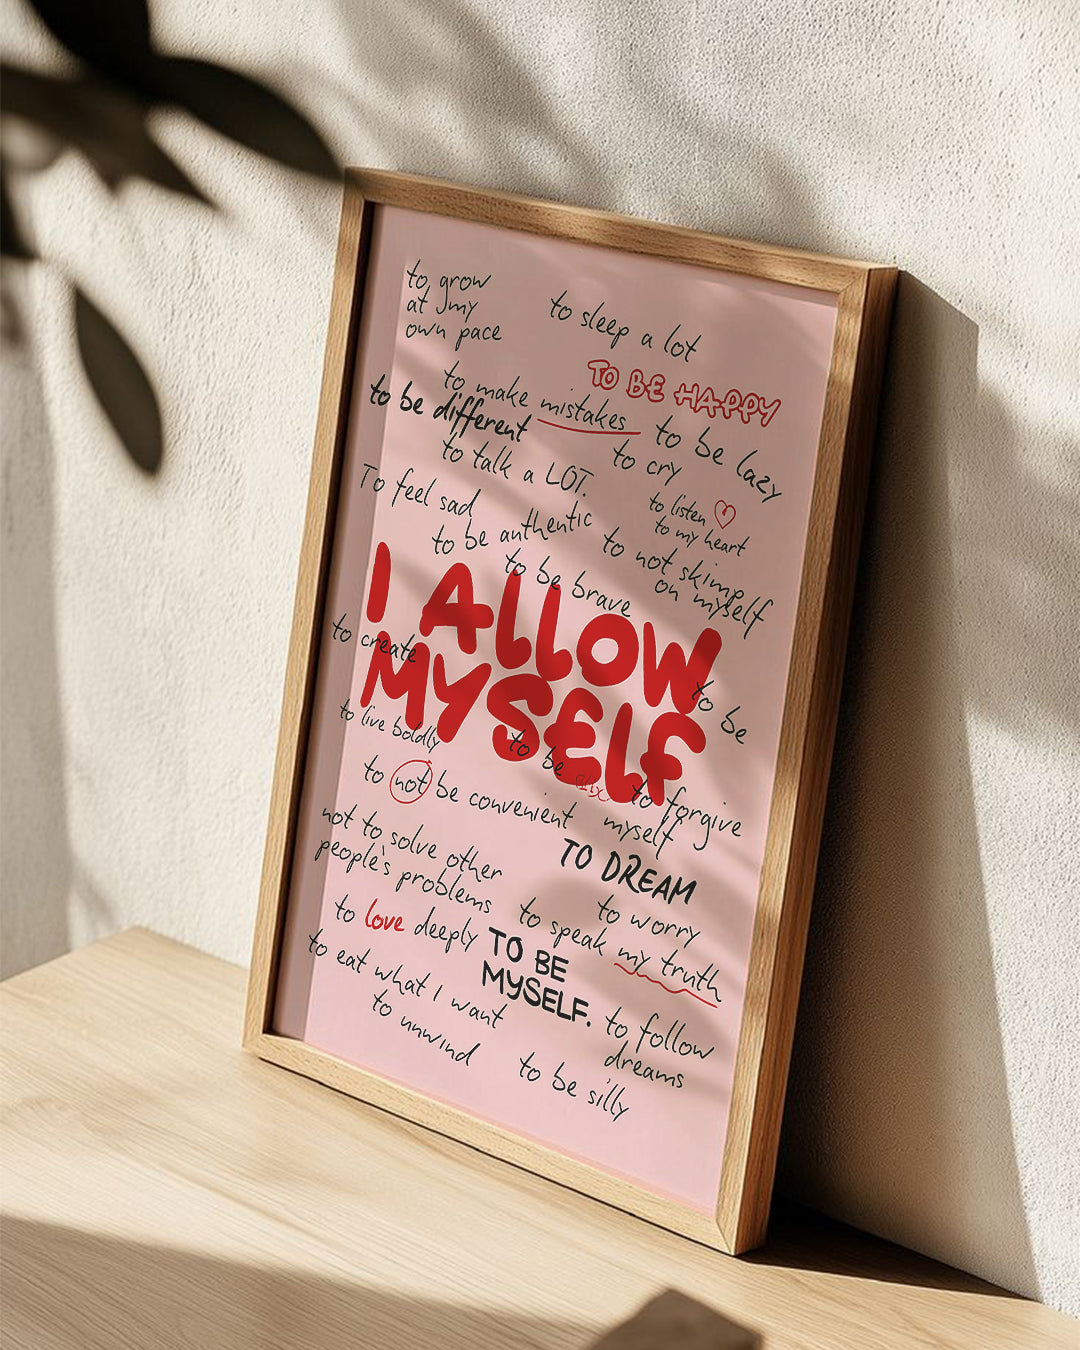 to grow
at my
own pace
to sleep a lot
TO BE HAPPY
to make mistakes
to be different
to be lazy
to talk a LOT.
to cry
To feel sad
to listen
to my heart
to be authentic
to not skimp
on myself
to be brave
I ALLOW
MYSELF
to create
to be
to live boldly
to be
to not be convenient
to forgive
myself
not to solve other
people's problems
TO DREAM
to worry
to love deeply
to speak my truth
TO BE
MYSELF.
to eat what I want
to unwind
to follow
dreams
to be silly